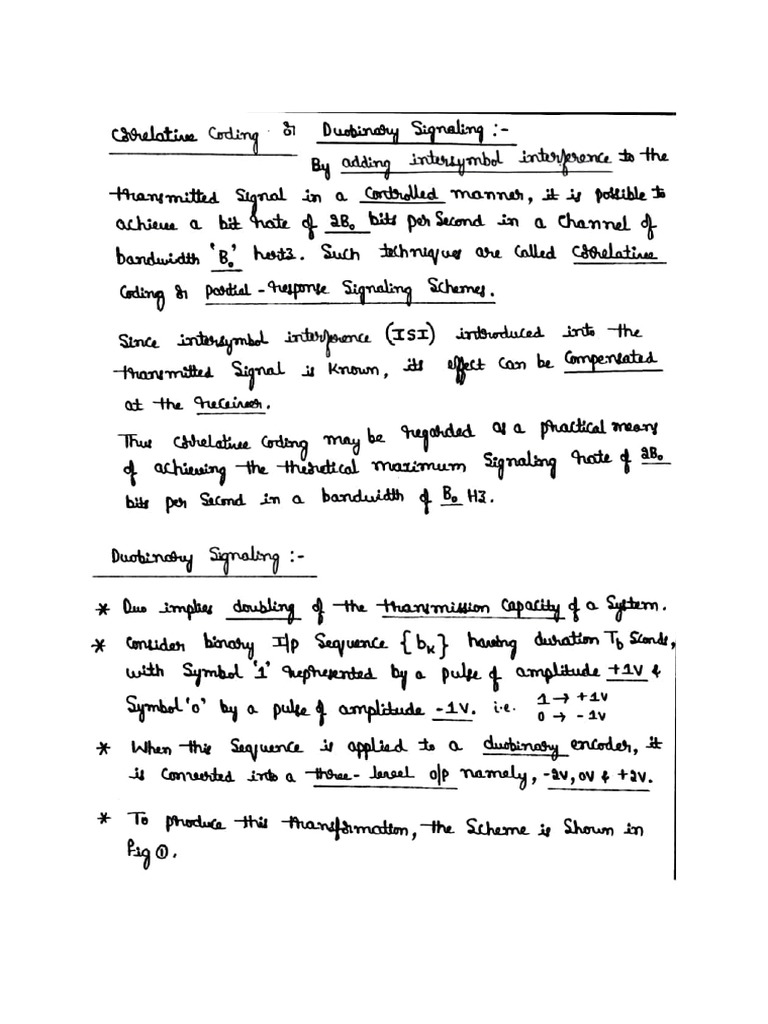 Correlative Coding or Duobinary Signaling :-
By adding intersymbol interference to the
transmitted Signal in a Controlled manner, it is possible to
achieve a bit rate of 2B₀ bits per Second in a Channel of
bandwidth 'B₀' hertz. Such techniques are called Correlative
Coding or Partial-response Signaling Schemes.
Since intersymbol interference (ISI) introduced into the
transmitted Signal is Known, its effect can be Compensated
at the receiver.
Thus Correlative Coding may be regarded as a practical means
of achieving the theoretical maximum Signaling rate of 2B₀
bits per Second in a bandwidth of B₀ Hz.
Duobinary Signaling :-
* Duo implies doubling of the transmission Capacity of a System.
* Consider binary I/p Sequence {bₖ} having duration Tb Sconds,
with Symbol '1' represented by a pulse of amplitude +1V &
Symbol '0' by a pulse of amplitude -1V. i.e. 1 → +1V
0 → -1V
* When this Sequence is applied to a duobinary encoder, it
is Converted into a three-level o/p namely, -2V, 0V & +2V.
* To produce this transformation, the Scheme is Shown in
Fig ①.